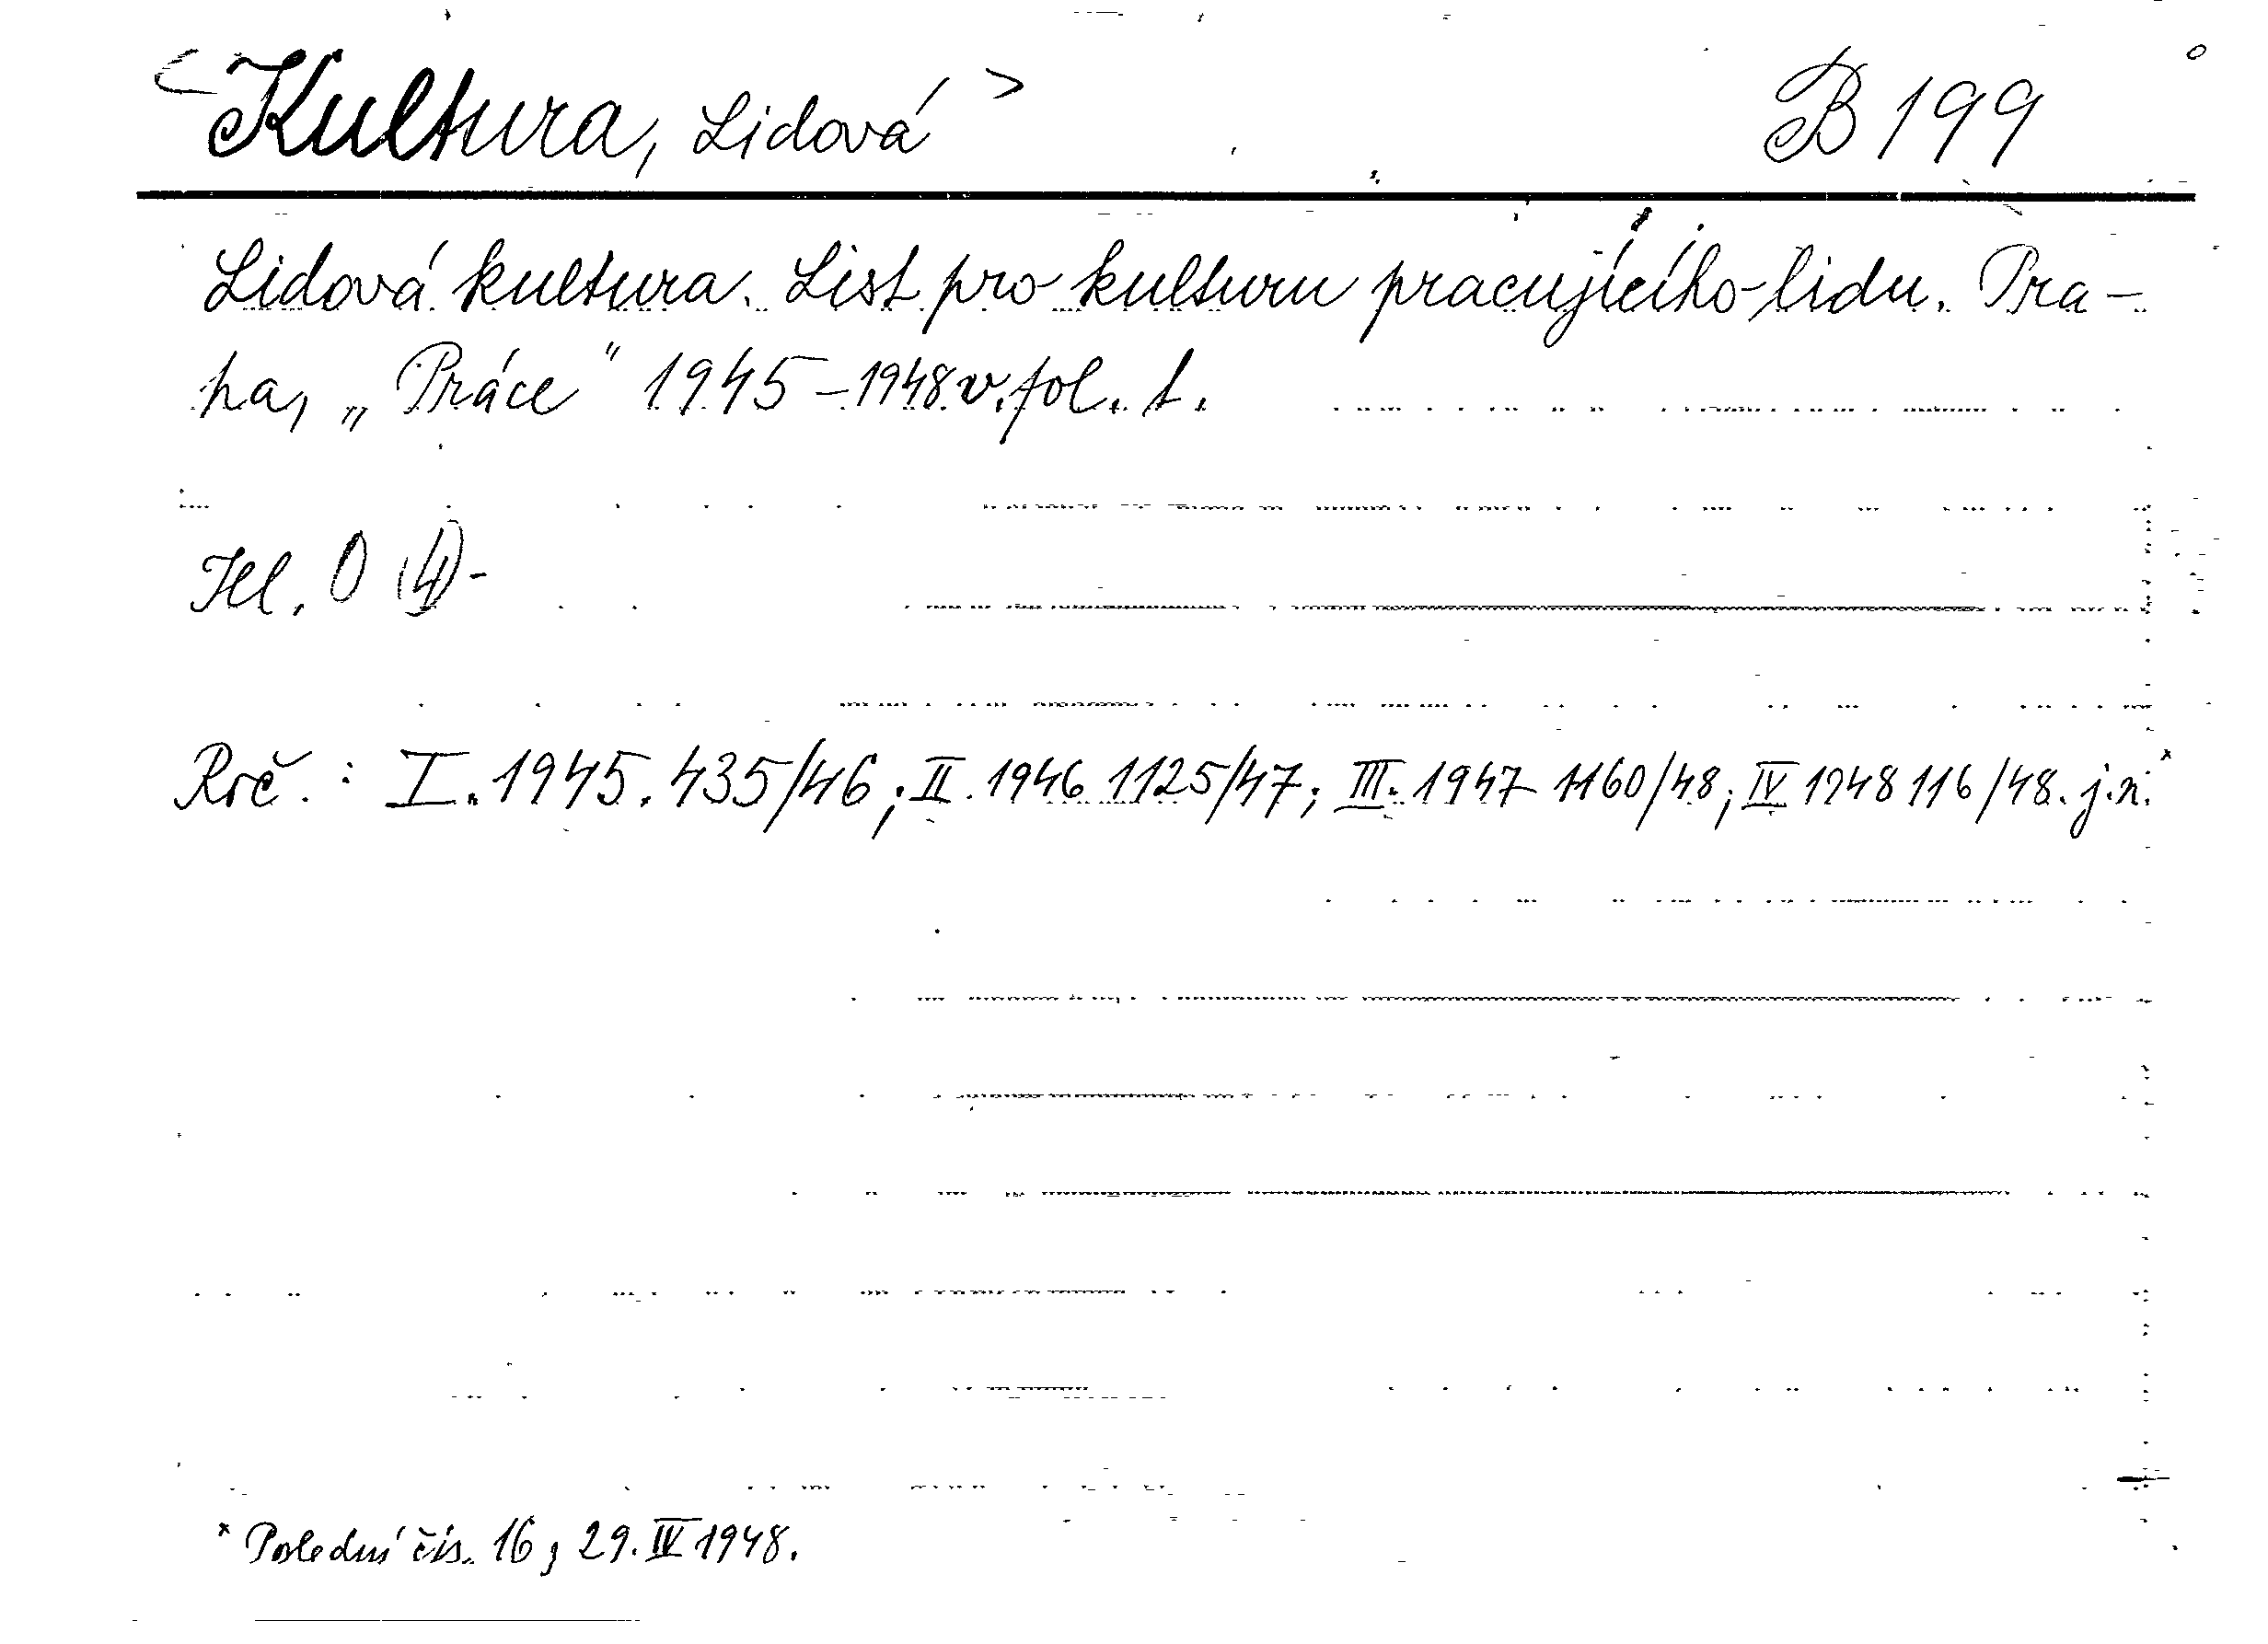 <Kultura, Lidová> B 199
Lidová kultura. List pro kulturu pracujícího lidu. Pra-
ha, „Práce" 1945-1948 v. fol. t.
Hl. O (4)-
Roč.: I. 1945. 435/46; II. 1946 1125/47; III. 1947 1160/48; IV 1948 116/48. j.n.*
* Poslední čís. 16, 29. IV 1948.